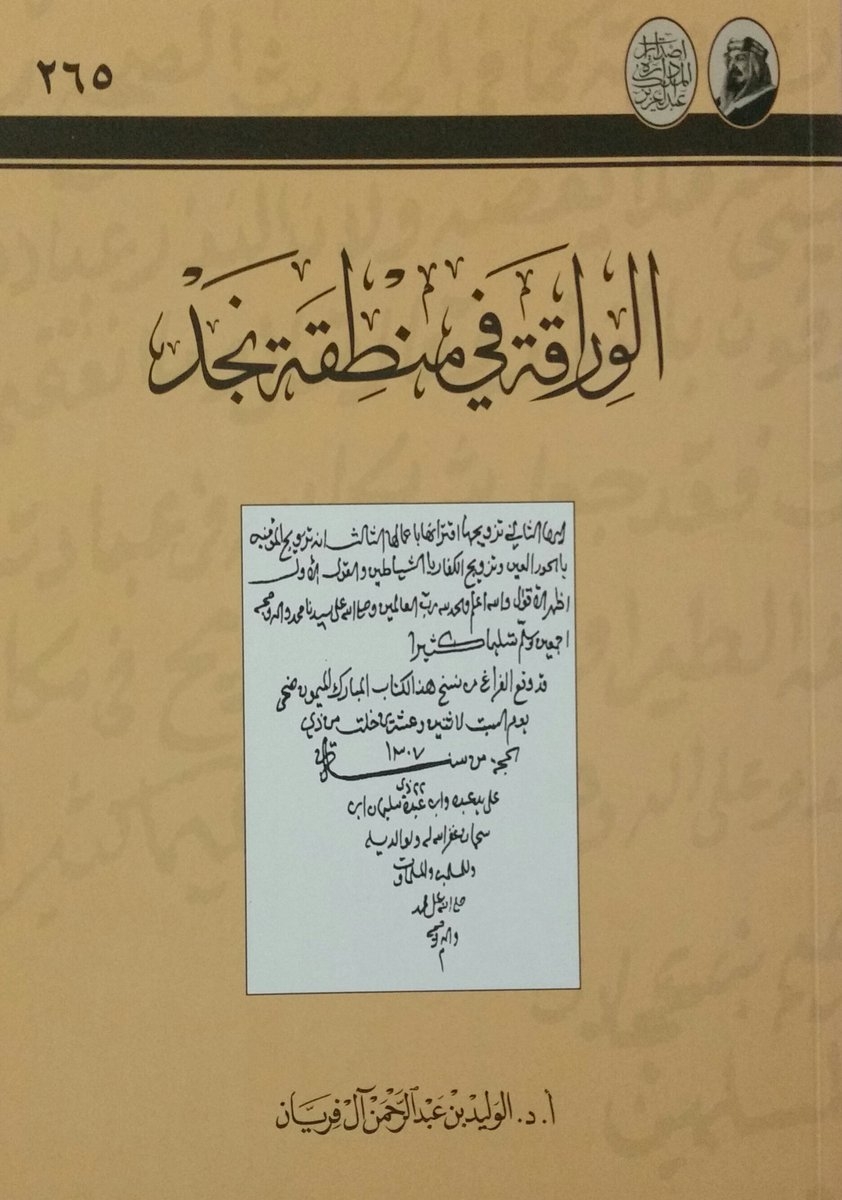 ٢٦٥
إصدارات
الدارة
الملك
عبدالعزيز
الوِراقة في منطِقة نجَدْ
الثاني تزويجها اقترانها باعمالها الثالث انه تزويج المؤمنين
بالحور العين وتزويج الكفار بالشياطين والقول الاول
اظهر الاقوال والله اعلم والحمد لله رب العالمين وصلى الله على سيدنا محمد واله وصحبه
اجمعين وسلم تسليما كثيرا
قد وقع الفراغ من نسخ هذا الكتاب المبارك الميمون ضحى
يوم السبت لاثنين وعشرين خلت من ذي
الحجة من سنة ١٣٠٧
على يد عبده وابن عبده سليمان ابن
سحمان غفر الله له ولوالديه
وللمسلمين والمسلمات
صلى الله على محمد
واله وصحبه
م
أ. د. الوليد بن عبد الرحمن آل فريان